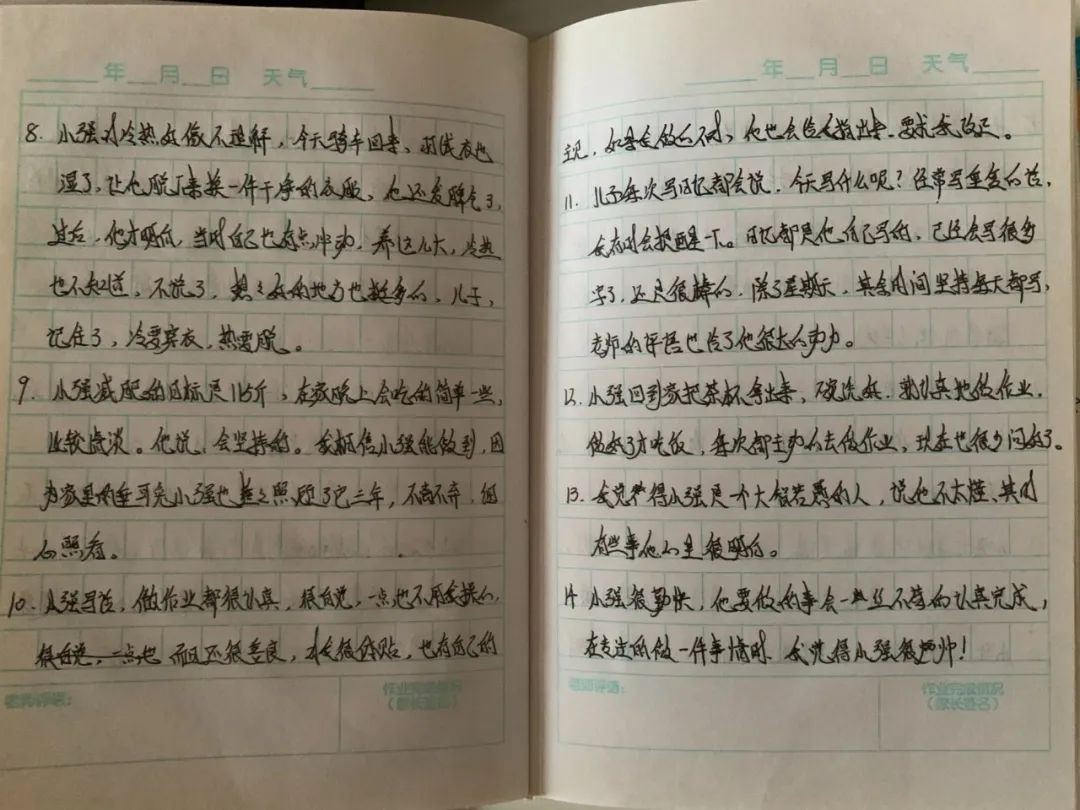 年 月 日 天气
8. 小强对冷热好像不理解，今天骑车回来，雨伐衣也
湿了，让他脱下来换一件干净的衣服，他还发脾气了，
过后，他才明白，当时自己也有点冲动，养这么大，冷热
也不知道，不说了，想想好的地方也挺多的，儿子，
记住了，冷要穿衣，热要脱。
9. 小强减肥的目标是115斤，在家晚上会吃的简单一些，
比较清淡。他说，会坚持的。我相信小强能做到，因
为家里的垂耳兔小强也整整照顾了它三年，不离不弃，细
心照看。
10. 小强写作，做作业都很认真，很自觉，一点也不用我操心，
很自觉，一点也 而且还很善良，对我很体贴，也有自己的
老师评语：
作业完成情况
（家长签名）
年 月 日 天气
主见，如果我做的不对，他也会给我指出来，要求我改正。
11. 儿子每次写日记都会说，今天写什么呢？经常写重复的话，
我有时会提醒一下。日记都是他自己写的，已经会写很多
字了，还是很棒的，除了星期天，其余时间坚持每天都写，
老师的评语也给了他很大的动力。
12. 小强回到家把茶杯拿出来，碗洗好，就认真地做作业，
做好了才吃饭，每次都主动的去做作业，现在也很少问好了。
13. 我觉得小强是一个大智若愚的人，说他不太懂，其时
有些事他心里很明白。
14 小强很勤快，他要做的事会一丝不苟的认真完成，
在专注的做一件事情时，我觉得小强很帅！
老师评语：
作业完成情况
（家长签名）